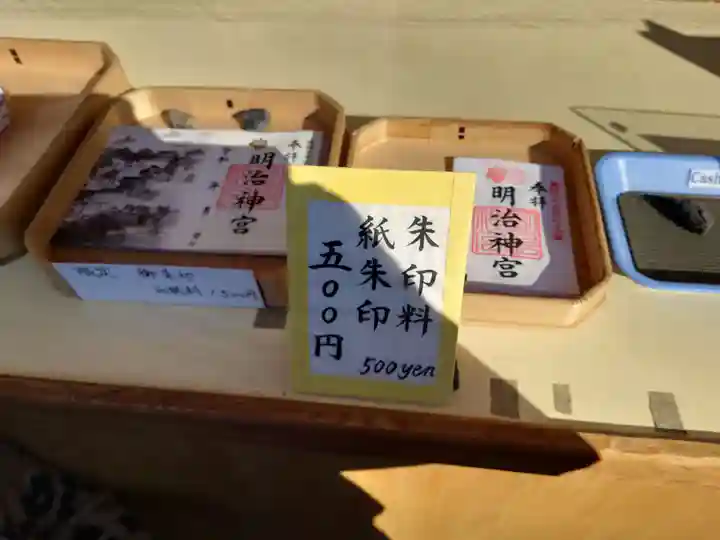 朱印料
紙朱印
五〇〇円
500yen
奉拝
明治神宮
奉拝
明治神宮
Cash